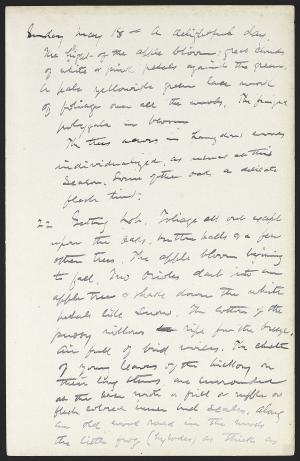 Sunday May 18 - A delightful day.
The light of the apple bloom; great clouds
of white or pink petals against the green.
A pale yellowish green lace work
of foliage over all the woods. The fringed
polygala in bloom
The trees across in woods
individualized, as usual at this
season. Some of the oak a delicate
flesh tint.
22 Getting hot. Foliage all out except
upon the oaks, button balls & a few
other trees. The apple bloom beginning
to fall. Two orioles dart into an
apple tree & shake down the white
petals like snow. The cotton of the
pussy willows ripe for the breeze,
Air full of bird voices. The
of young leaves of the hickory on
their long stems are surrounded
at the base with a frill or ruffle of
flesh colored inner bud scales. Along
an old wood road in the woods
the little frog (hylodes) as thick as